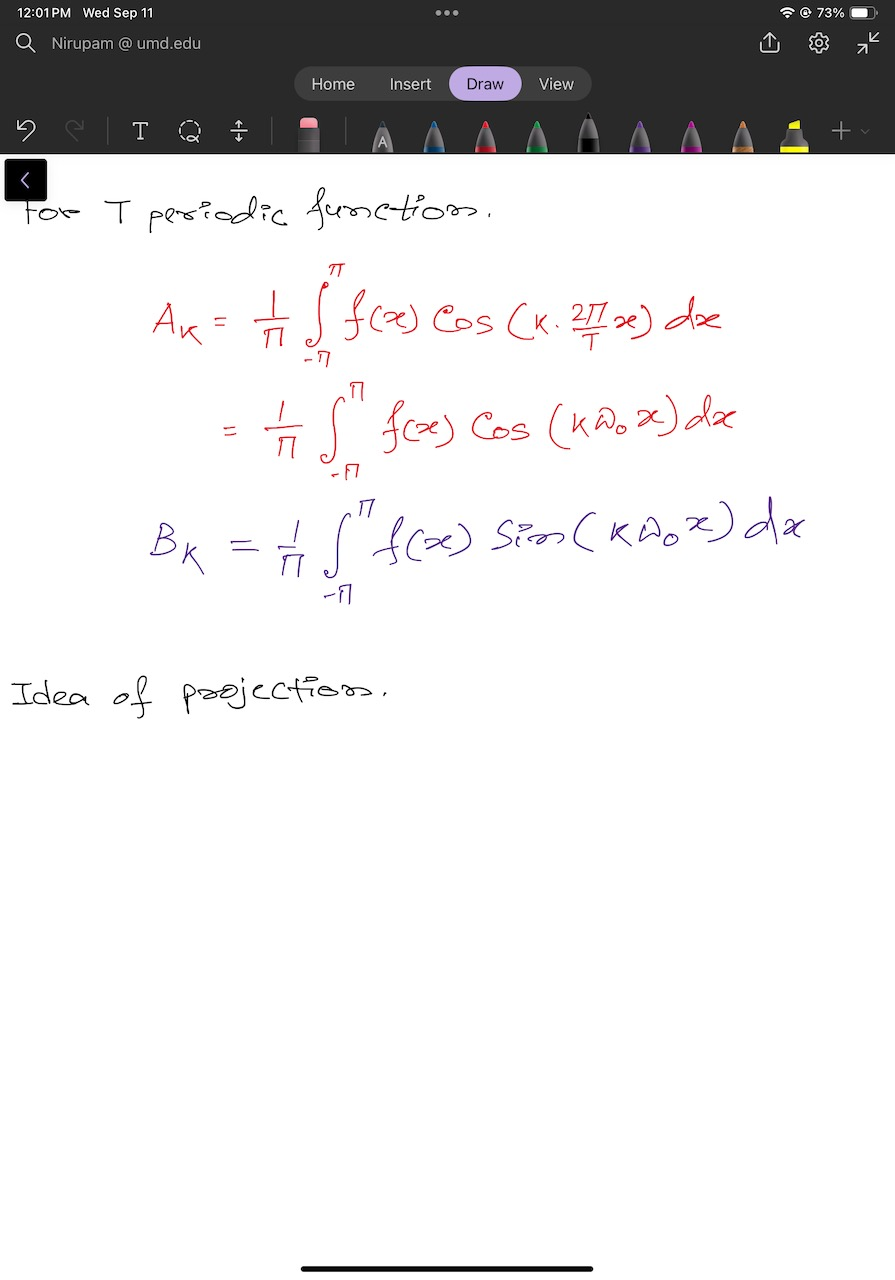 12:01 PM Wed Sep 11
73%
Nirupam @ umd.edu
Home Insert Draw View
T
A
For T periodic function.
A_K = 1/π ∫_{-π}^{π} f(x) Cos (K · 2π/T x) dx
= 1/π ∫_{-π}^{π} f(x) Cos (K ω₀ x) dx
B_K = 1/π ∫_{-π}^{π} f(x) Sin (K ω₀ x) dx
Idea of projection.